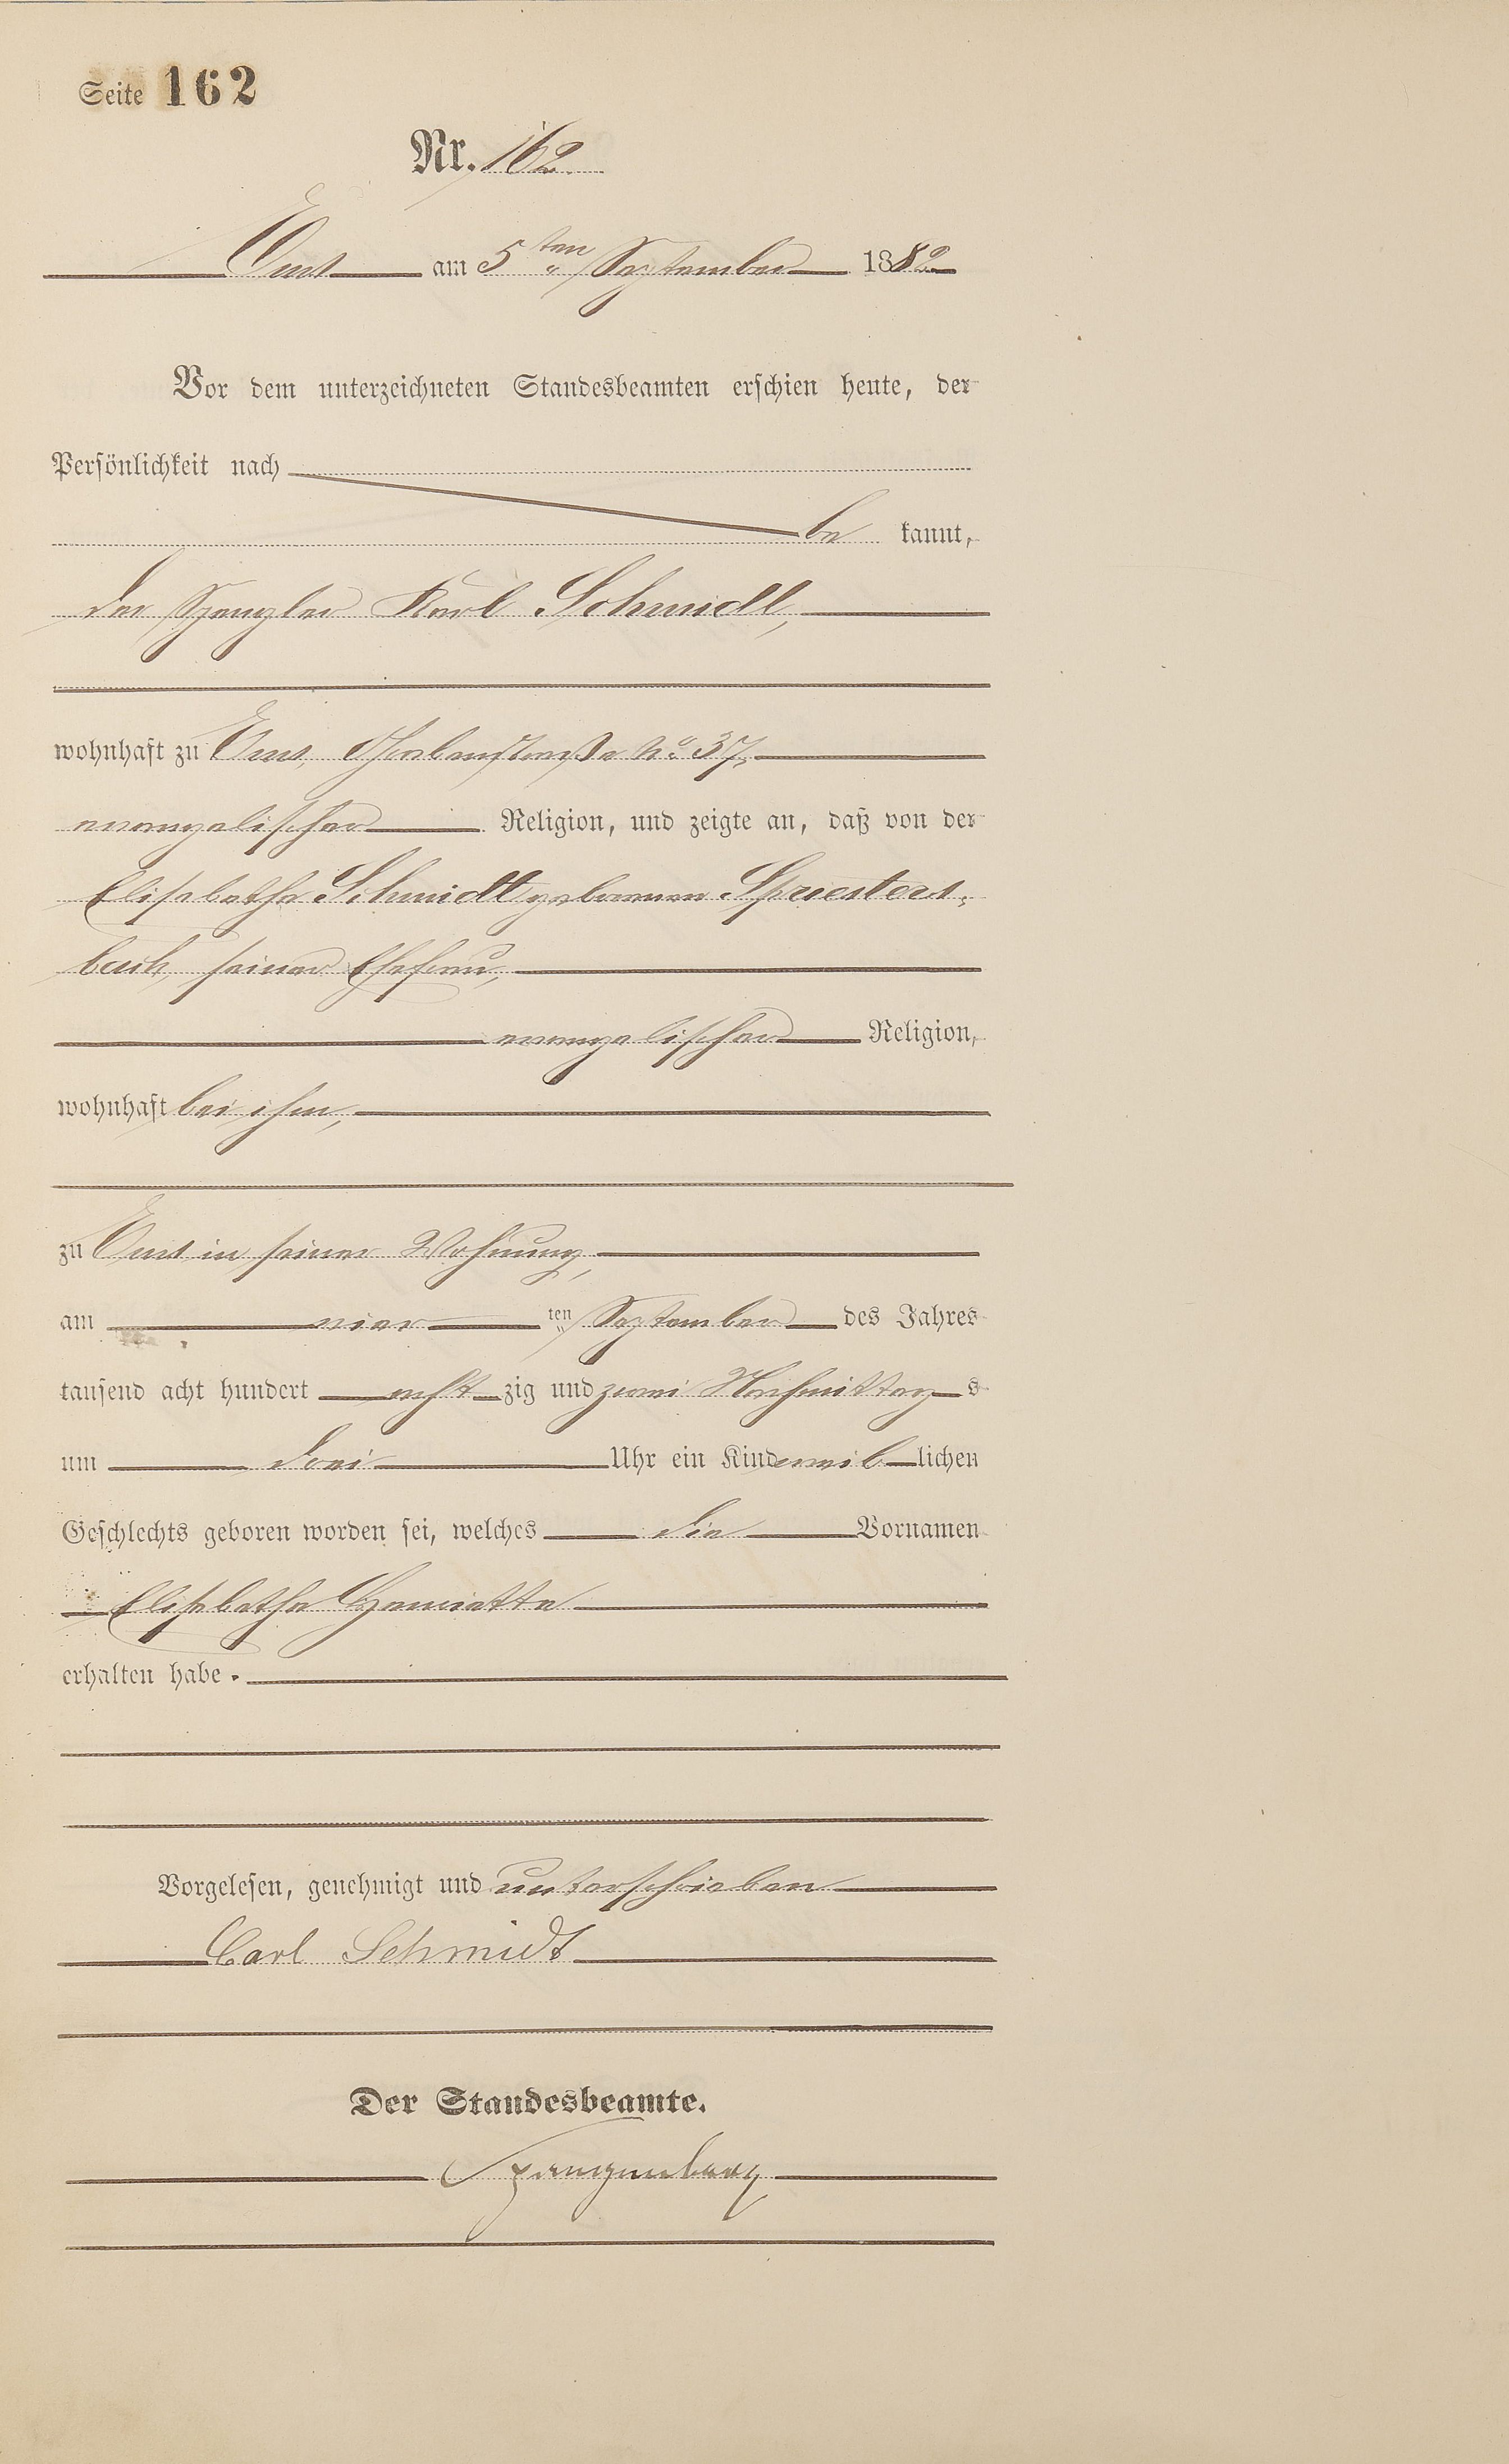 Seite 162
Nr. 162.
Ems am 5ten September 1882
Vor dem unterzeichneten Standesbeamten erschien heute, der
Persönlichkeit nach
be kannt,
der Spengler Karl Schmidt,
wohnhaft zu Ems, No. 37,
evangelischer Religion, und zeigte an, daß von der
Elisabetha Schmidt geborenen Spriesters-
bach, seiner Ehefrau,
evangelischer Religion,
wohnhaft bei ihm,
zu Ems in seiner Wohnung,
am vier ten September des Jahres
tausend acht hundert acht zig und zwei Nachmittag s
um drei Uhr ein Kind weib lichen
Geschlechts geboren worden sei, welches die Vornamen
Elisabetha Henriette
erhalten habe.
Vorgelesen, genehmigt und unterschrieben
Carl Schmidt
Der Standesbeamte.
Spangenberg